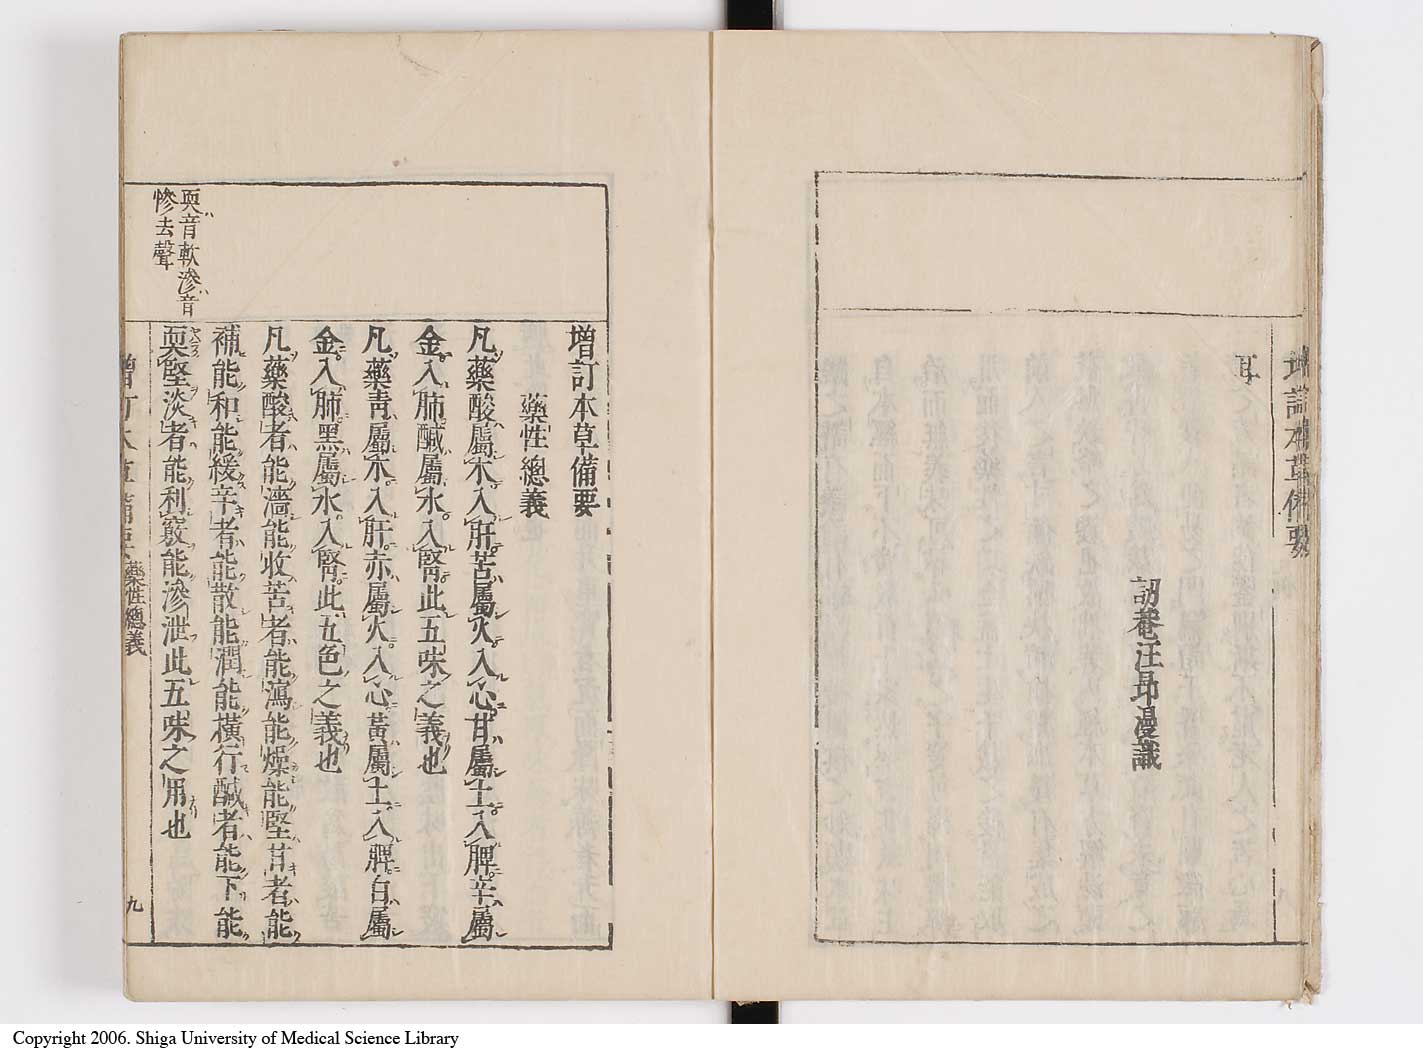 耳
訒菴汪昂漫識
增訂本草備要
耎音軟滲音
慘去聲
增訂本草備要
藥性總義
凡藥酸屬木入肝苦屬火入心甘屬土入脾辛屬
金入肺鹹屬水入腎此五味之義也
凡藥青屬木入肝赤屬火入心黃屬土入脾白屬
金入肺黑屬水入腎此五色之義也
凡藥酸者能濇能收苦者能瀉能燥能堅甘者能
補能和能緩辛者能散能潤能橫行鹹者能下能
耎堅淡者能利竅能滲泄此五味之用也
增訂本草備要 藥性總義 九
Copyright 2006. Shiga University of Medical Science Library